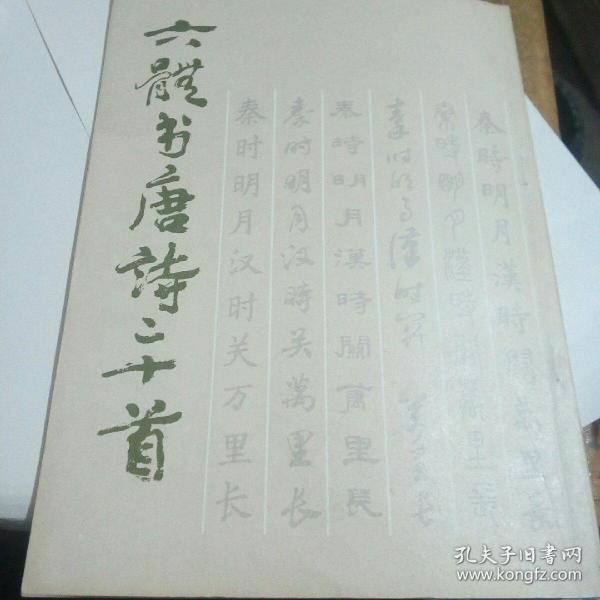 六體书唐詩二十首
秦時明月漢時關萬里長
秦時明月漢時關萬里長
秦时明月漢时关萬里长
秦時明月漢時關萬里長
秦时明月汉時关萬里長
秦时明月汉时关万里长
孔夫子旧书网
www.kongfz.com